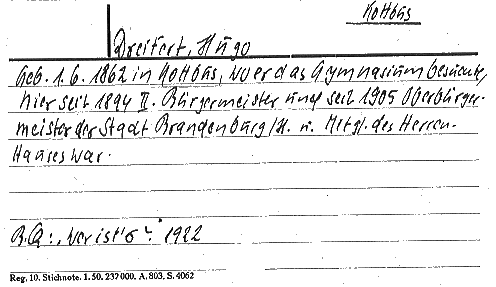 Kottbus
Dreifert, Hugo
Geb. 1.6. 1862 in Kottbus, wo er das Gymnasium besuchte,
hier seit 1894 II. Bürgermeister und seit 1905 Oberbürger-
meister der Stadt Brandenburg/H. u. Mitgl. des Herren-
Hauses war.
B.Q.: „Wer ist's“. 1922
Reg. 10. Stichnote. 1. 50. 237000. A. 803. S. 4062